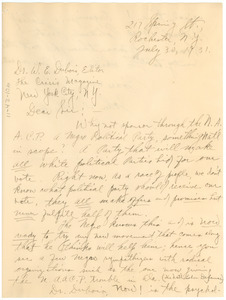 211 Spring St
Rochester N.Y.
July 30, 1931.
Dr. W. E. DuBois, Editor
The Crisis Magazine
New York City, N.Y.
Dear Sir:
Why not sponsor through the N.A.
A.C.P. a Negro Political Party, something
in scope? A Party that will make
all white political Parties bid for our
vote. Right now, as a race of people, we don't
know what political party should receive our
vote, they all make offers and promises but
never fulfill half of them.
The Negro knows this and is now
ready to try any new movement that comes along
that he thinks will help him, hence you
see a few Negroes sympathize with radical
organizations such as the one now giving
the N.A.A.C.P. trouble in
Dr. DuBois, now! is the psychol-